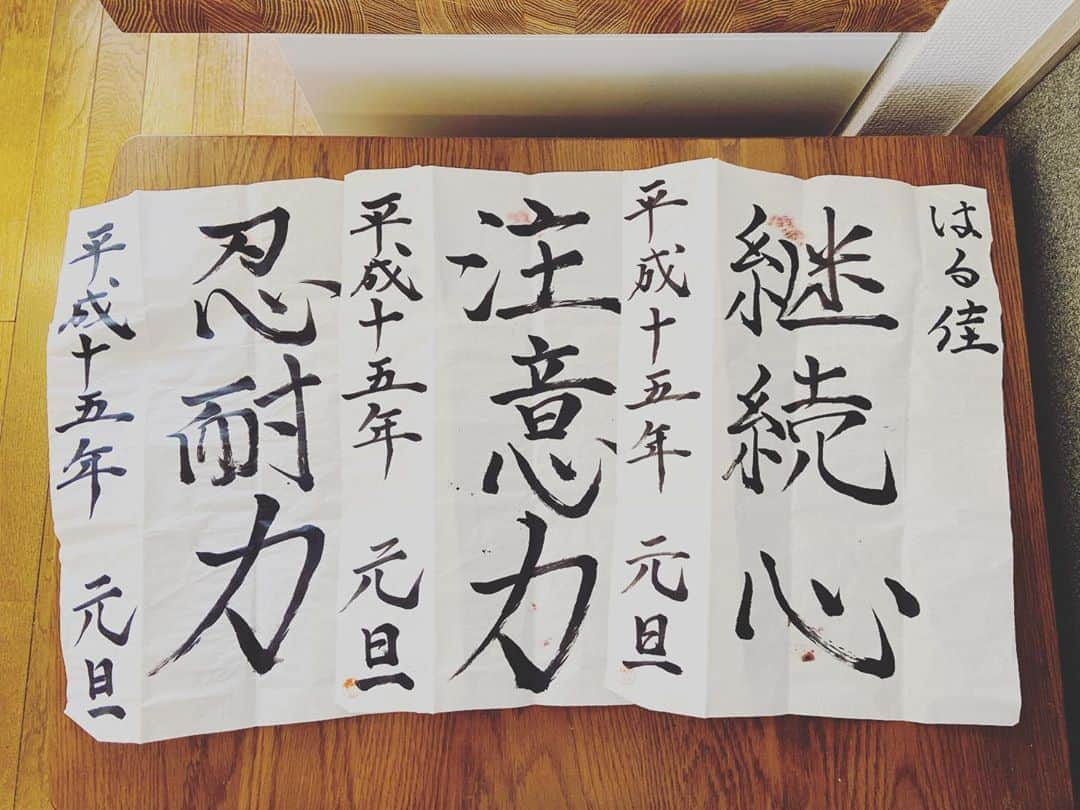 はる佳
継続心
平成十五年 元旦
注意力
平成十五年 元旦
忍耐力
平成十五年 元旦